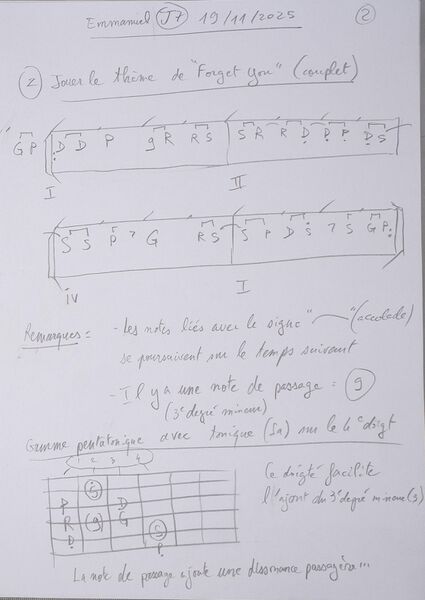 Emmanuel J7 19/11/2025 2
2 Jouer le thème de "Forget You" (couplet)
G P D D P g R R S S R R D D P D S
I II
S S P 7 G R S S P D S 7 S G P
IV I
Remarques = - Les notes liés avec le signe " " (accolade)
se poursuivent sur le temps suivant
- Il y a une note de passage = g
(3e degré mineur)
Gamme pentatonique avec tonique (Sa) sur le 4e doigt
2 3 4
S
P D
R g G
D S
P
Ce doigté facilite
l'ajout du 3e degré mineur (g)
La note de passage ajoute une dissonance passagère...